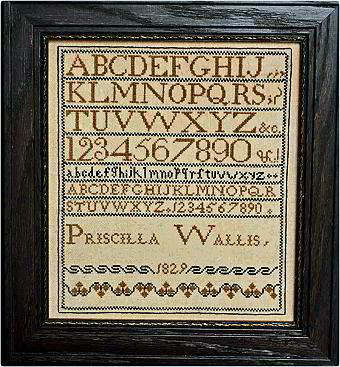 ABCDEFGHIJ,,,
KLMNOPQRS;?
TUVWXYZ&c.
1234567890 !
abcdefghijklmnopqrstuvwxyz
ABCDEFGHIJKLMNOPQR
STUVWXYZ.1234567890.
PRISCILLA WALLIS,
1829